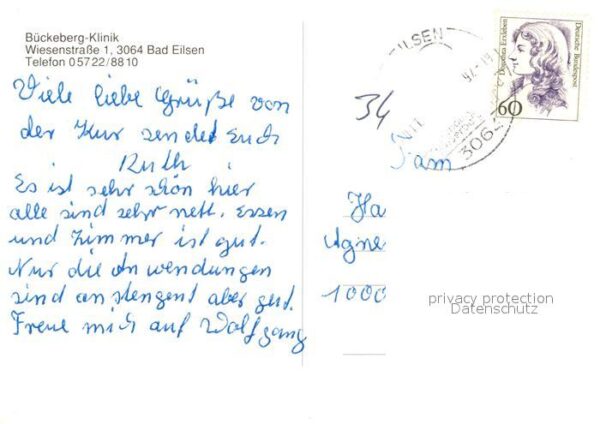 Bückeberg-Klinik
Wiesenstraße 1, 3064 Bad Eilsen
Telefon 05722/8810
Viele liebe Grüße von
der Kur sendet Euch
Ruth
Es ist sehr schön hier
alle sind sehr nett. Essen
und Zimmer ist gut.
Nur die Anwendungen
sind anstengent aber gut.
Freue mich auf Wolfgang
EILSEN
306
Dorothea Erxleben
Deutsche Bundespost
60
34
Fam
Ha
Agne
1000
privacy protection
Datenschutz